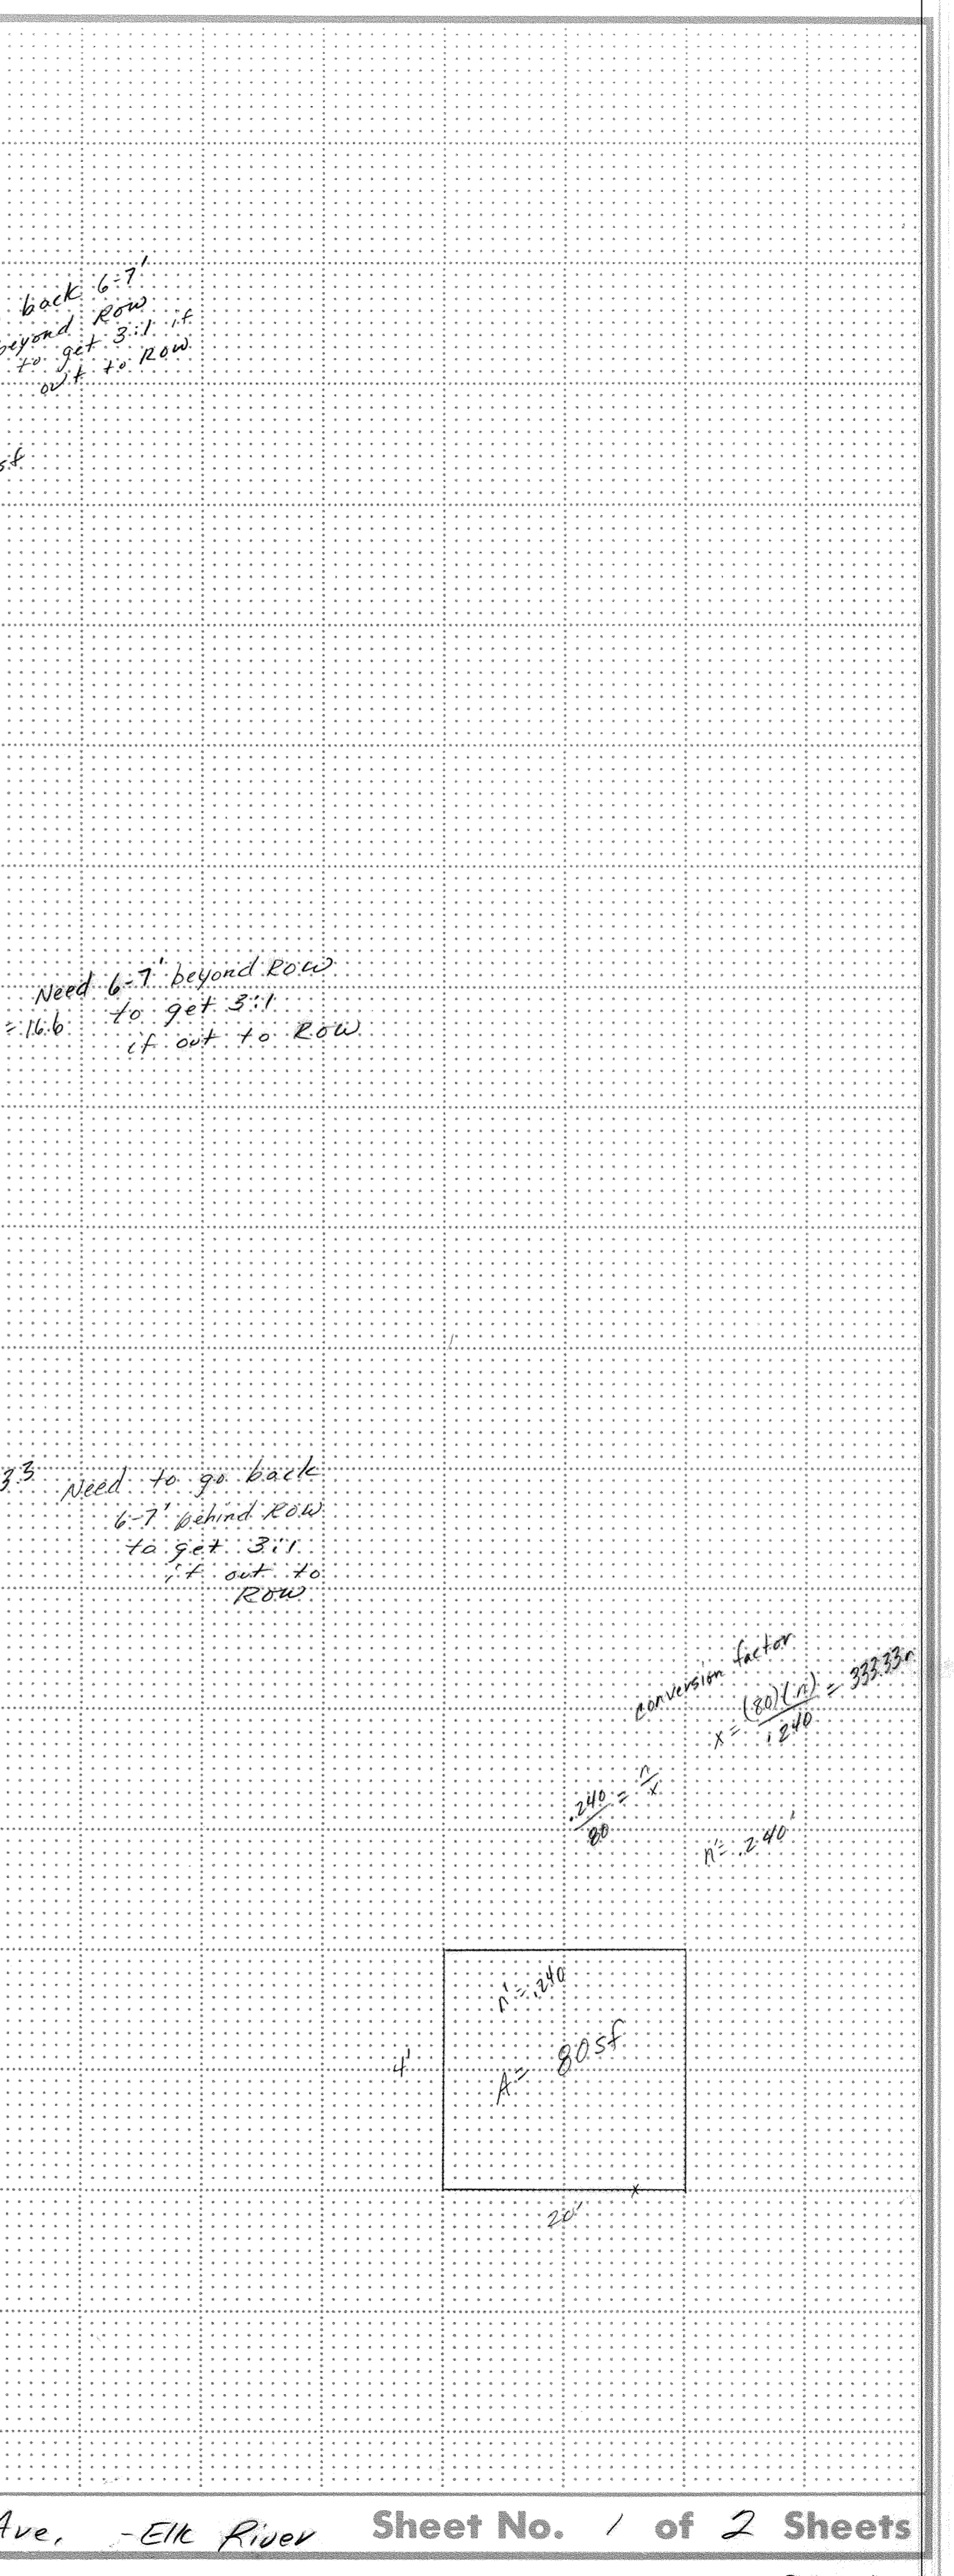 back 6-7'
beyond ROW
to get 3:1 if
out to ROW
sf
Need 6-7' beyond ROW
= 16.6 to get 3:1
if out to ROW
33 Need to go back
6-7' behind ROW
to get 3:1
if out to
ROW
conversion factor
x = (80)(n)/.240 = 333.33n
.240/80 = n/x
n' = .240'
n' = .240
A = 80 sf
4'
20'
Ave. - Elk River Sheet No. 1 of 2 Sheets